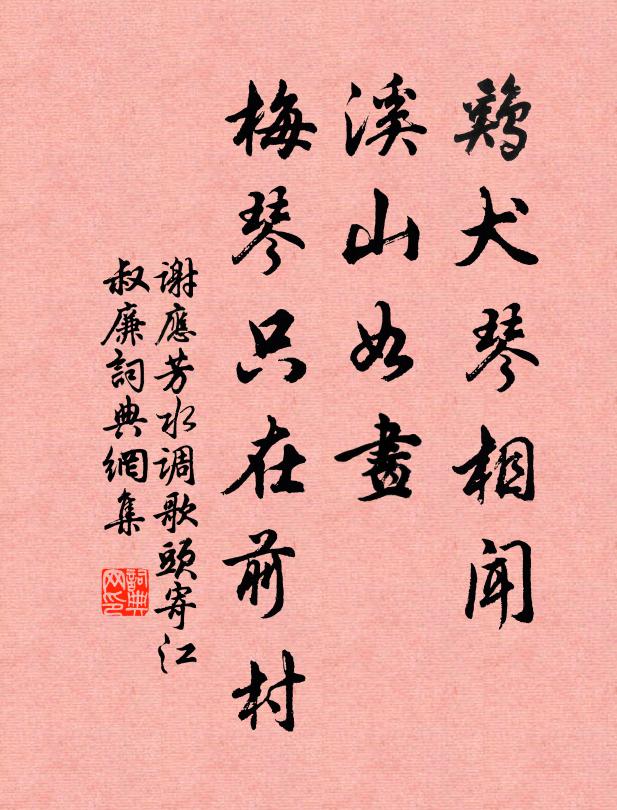 鷄犬琴相聞
溪山如畫
梅琴只在前村
謝應芳水调歌頭寄江
叔廉詞典網集
詞典网印